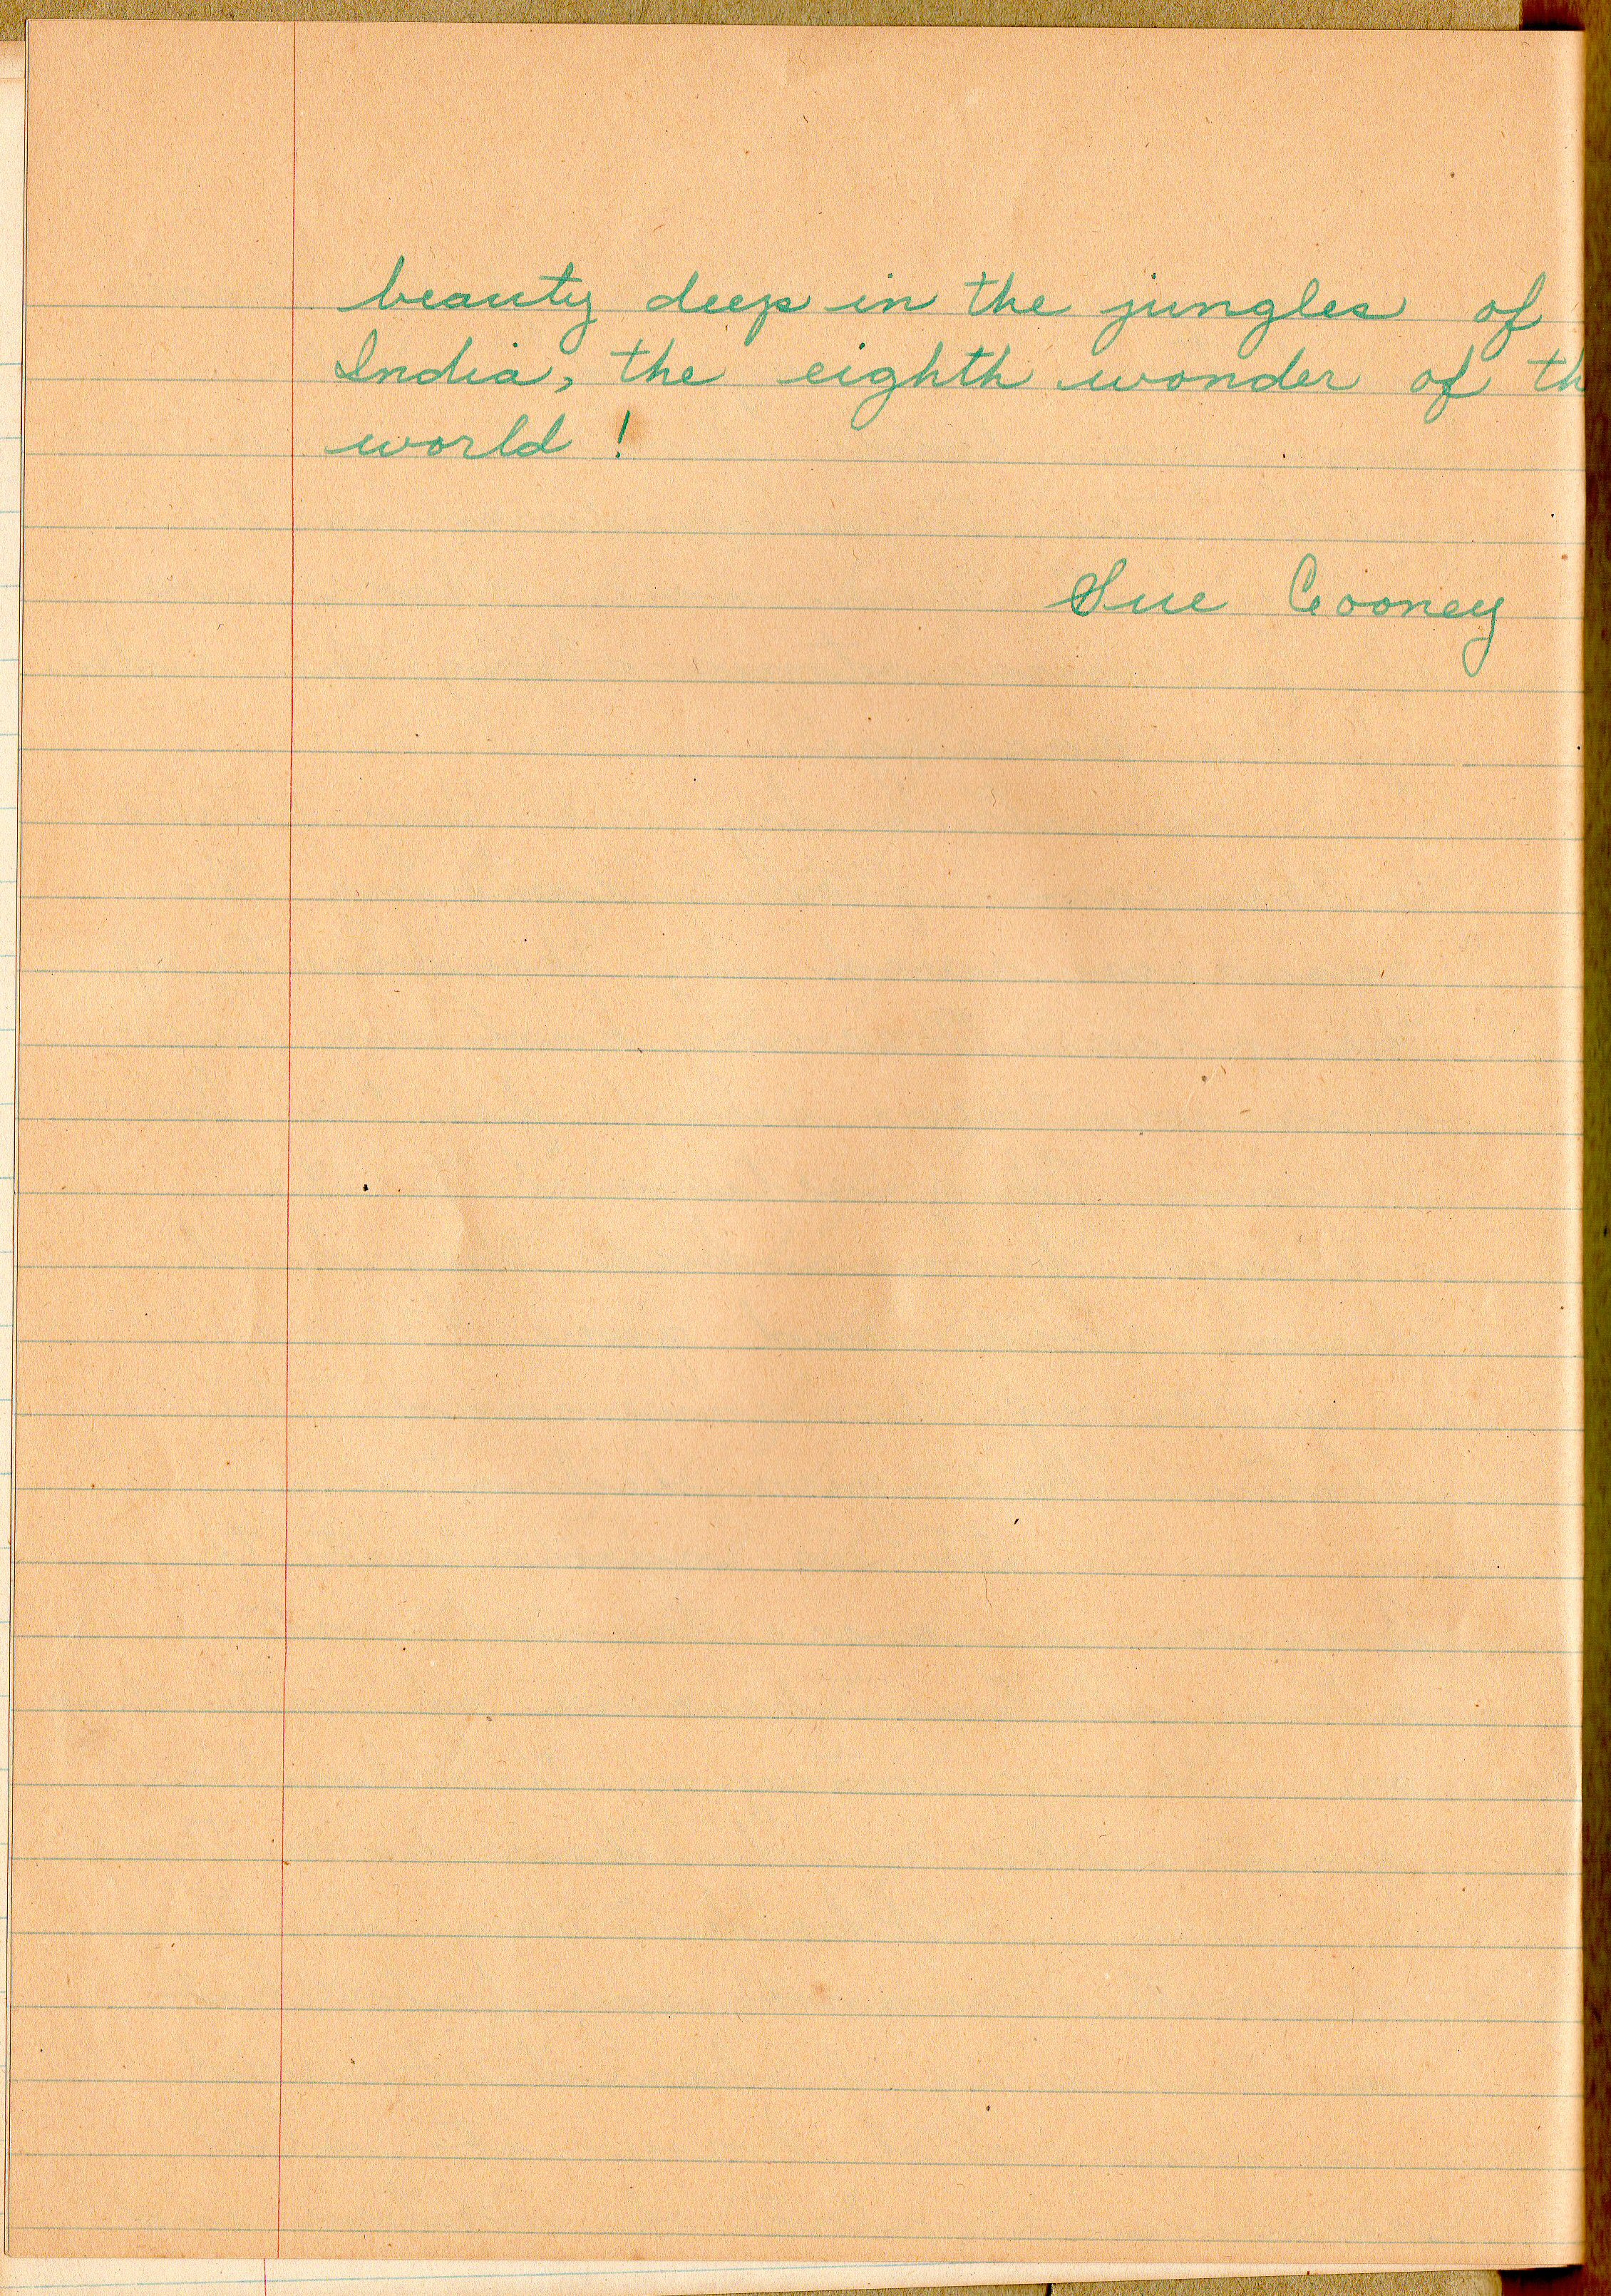 beauty deep in the jungles of
India, the eighth wonder of th
world !
Sue Cooney